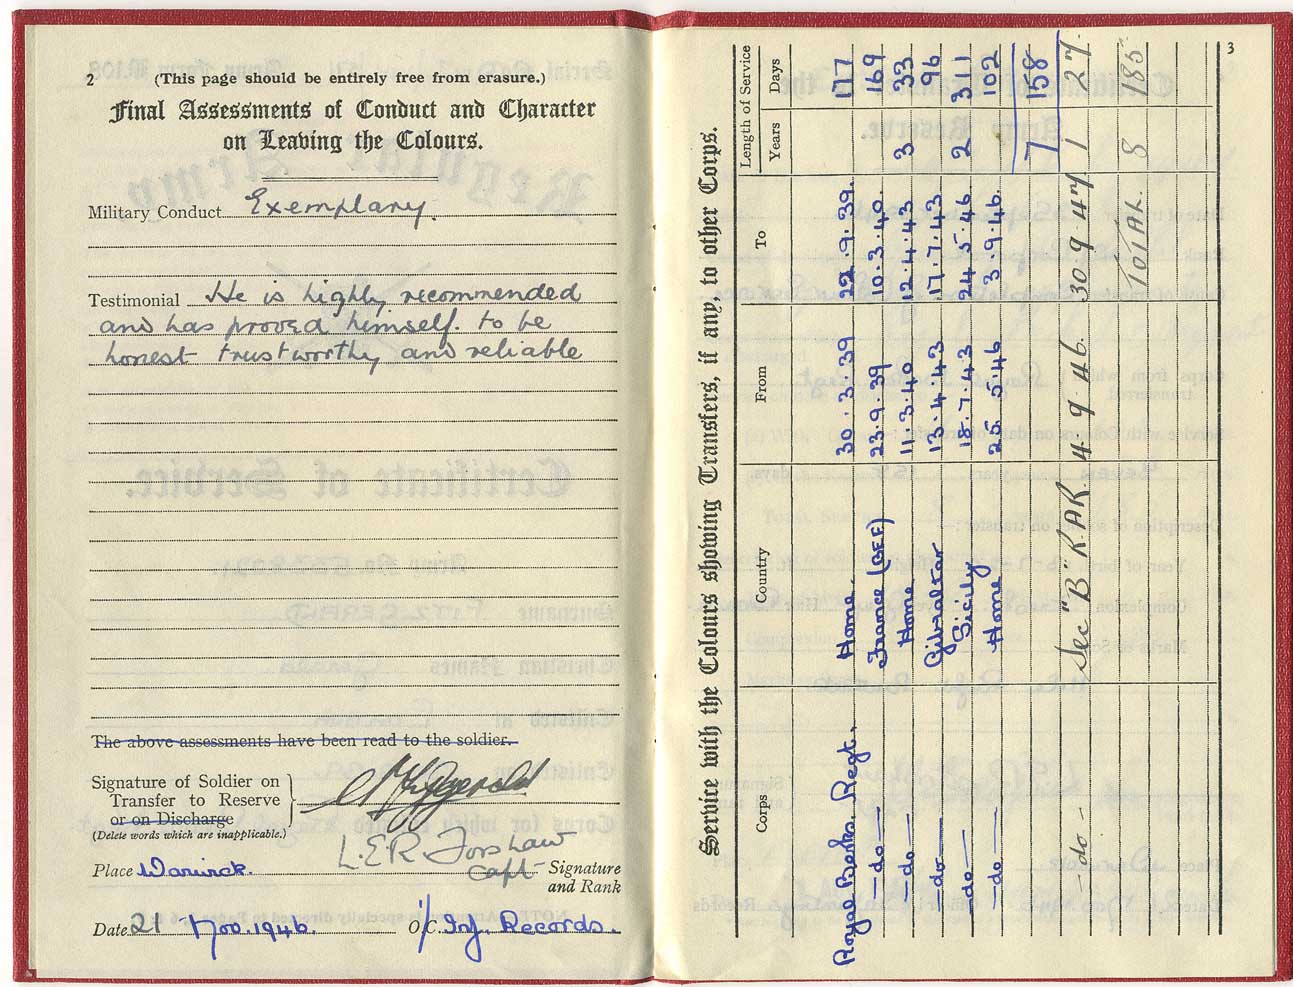 2 (This page should be entirely free from erasure.)
Final Assessments of Conduct and Character
on Leaving the Colours.
Military Conduct Exemplary.
Testimonial He is highly recommended
and has proved himself. to be
honest trustworthy and reliable
The above assessments have been read to the soldier.
Signature of Soldier on
Transfer to Reserve
or on Discharge
(Delete words which are inapplicable.)
Fitzgerald
L.E.R. Forshaw
Place Warwick. Capt Signature
and Rank
Date 21 Nov. 1946. O.C. i/c Inf. Records.
3
Service with the Colours showing Transfers, if any, to other Corps.
Corps Country From To Length of Service
Years Days
Royal Berks. Regt. Home. 30.3.39 22.9.39. 177
—do— France (BEF) 23.9.39 10.3.40. 169
—do— Home 11.3.40 12.4.43 3 33
—do— Gibraltar 13.4.43 17.7.43 96
—do— Sicily 18.7.43 24.5.46 2 311
—do— Home 25.5.46 3.9.46. 102
7 158
—do— Sec "B" R.AR. 4 9 46. 30 9 47 1 27
TOTAL. 8 185